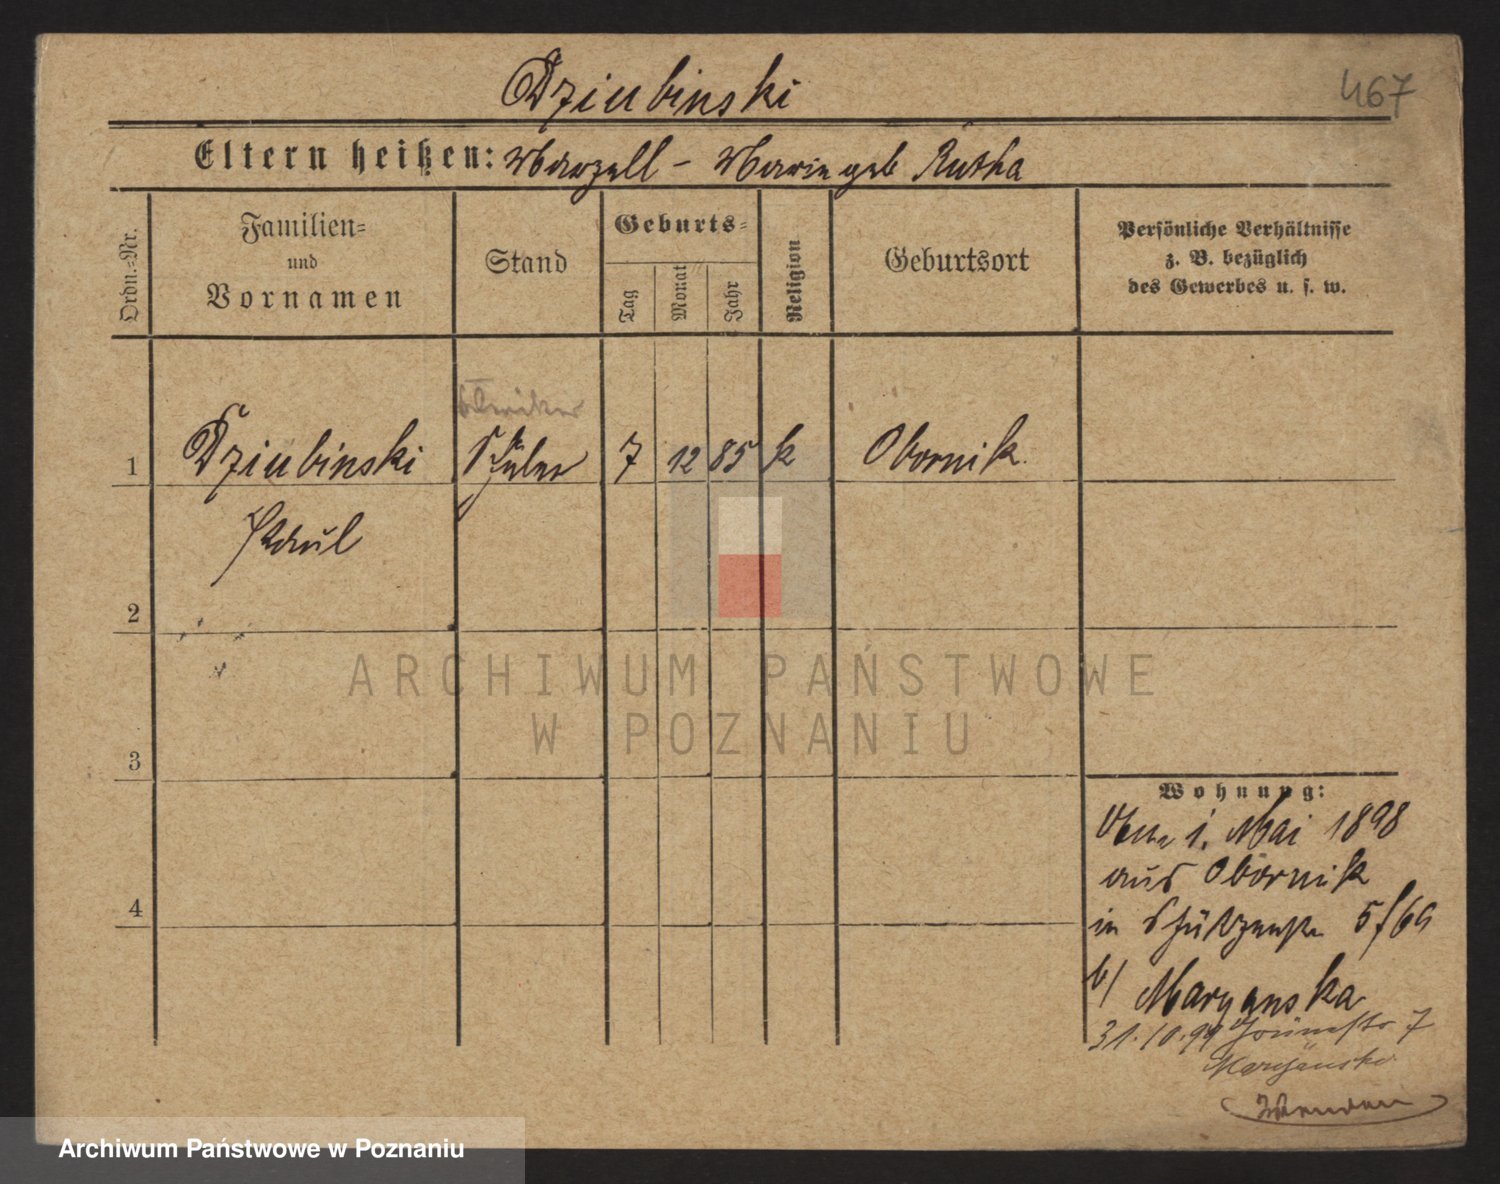 Dziubinski
467
Eltern heißen: Marzell - Marie geb Rutha
Ordn.=Nr.
Familien=
und
Vornamen
Stand
Geburts=
Tag
Monat
Jahr
Religion
Geburtsort
Persönliche Verhältnisse
z. B. bezüglich
des Gewerbes u. s. w.
Kleriker
1 Dziubinski Schüler 7 12 85 k Obornik
Paul
2
3
4
Wohnung:
1. Mai 1898
aus Obornik
in Schützenstr 5/6
b/ Maryanska
31.10.99 Grünestr 7
Maryanska
Wenden
ARCHIWUM PAŃSTWOWE
W POZNANIU
Archiwum Państwowe w Poznaniu